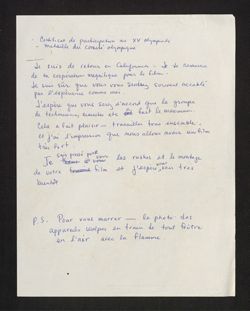 - Certificat de participation au XV olympiade
- medaille du comité olympique
Je suis de retour en Californie. Je te remercie
de ta cooperation magnifique pour le film.
Je suis sûr que vous vous sentez souvent accablé
pas d'esplanne comme moi.
J'espère que vous serez d'accord que le groupe
de techniciens, cameras etc fait le maximum.
Cela a fait plaisir — travailler tous ensemble.
et j'ai l'impression que nous allons avoir un film
très fort.
Je vous les rushes et le montage
de votre film et j'espère vous très
bientôt
P.S. Pour vous marrer — la photo des
appareils en train de tout foutre
en l'air avec la flamme.